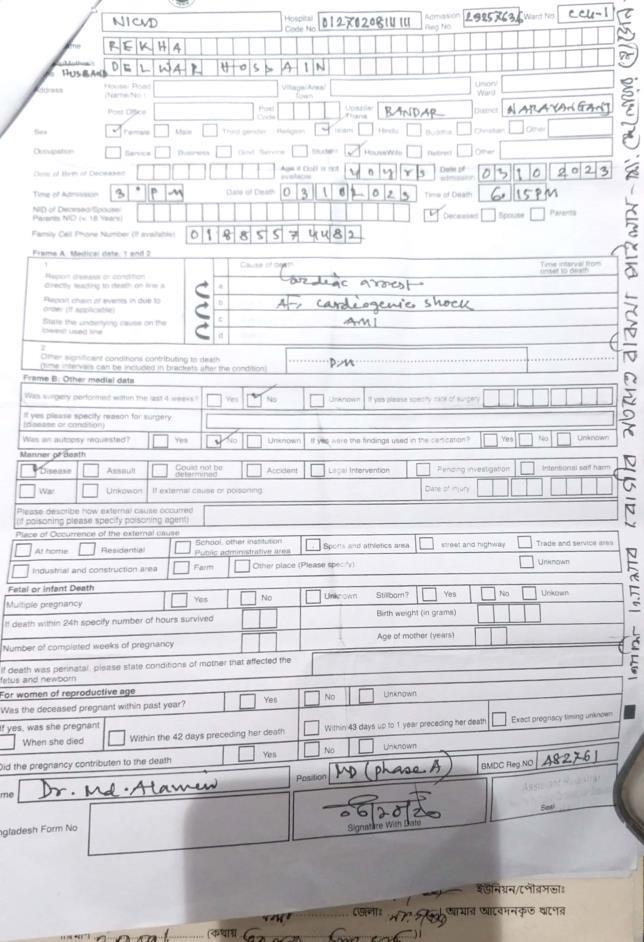 NICVD Hospital Code No 012702081111 Admission Reg No. 2925763 Ward No CCU-1
me REKHA
HUSBAND DELWAR HOSSAIN
Address House/ Road (Name/No.) Village/Area/ Town Union/ Ward
Post Office Post Code Upazila/ Thana BANDAR District NARAYANGANJ
Sex Female Male Third gender Religion Islam Hindu Buddha Christian Other
Occupation Service Business Govt. Service Student HouseWife Retired Other
Date of Birth of Deceased Age if DoB is not available 40 yrs Date of admission 03102023
Time of Admission 3 PM Date of Death 03102023 Time of Death 6:15PM
NID of Deceased/Spouse/ Parents NID (< 18 Years) Deceased Spouse Parents
Family Cell Phone Number (If available) 01885574482
Frame A: Medical data: 1 and 2
1 Cause of death Time interval from onset to death
Report disease or condition directly leading to death on line a a Cardiac arrest
Report chain of events in due to order (if applicable) b AF, cardiogenic shock
State the underlying cause on the lowest used line c AMI
d
2
Other significant conditions contributing to death (time intervals can be included in brackets after the condition) DM
Frame B: Other medial data
Was surgery performed within the last 4 weeks? Yes No Unknown If yes please specify date of surgery
If yes please specify reason for surgery (disease or condition)
Was an autopsy requested? Yes No Unknown If yes were the findings used in the certication? Yes No Unknown
Manner of death
Disease Assault Could not be determined Accident Legal Intervention Pending investigation Intentional self harm
War Unkowon If external cause or poisoning Date of injury
Please describe how external cause occurred (If poisoning please specify poisoning agent)
Place of Occurrence of the external cause
At home Residential School, other institution Public administrative area Sports and athletics area street and highway Trade and service area
Industrial and construction area Farm Other place (Please specify) Unknown
Fetal or infant Death
Multiple pregnancy Yes No Unkrown Stillborn? Yes No Unkown
If death within 24h specify number of hours survived Birth weight (in grams)
Number of completed weeks of pregnancy Age of mother (years)
If death was perinatal, please state conditions of mother that affected the fetus and newborn
For women of reproductive age
Was the deceased pregnant within past year? Yes No Unknown
If yes, was she pregnant
When she died Within the 42 days preceding her death Within 43 days up to 1 year preceding her death Exact pregnacy timing unknown
Did the pregnancy contributed to the death Yes No Unknown
me Dr. Md. Alamein Position MD (phase A) BMDC Reg.NO A82761
Assistant Registrar
Seal
ngladesh Form No Signature With Date
ইউনিয়ন/পৌরসভাঃ
জেলাঃ আমার আবেদনকৃত ঋণের
(কথায়